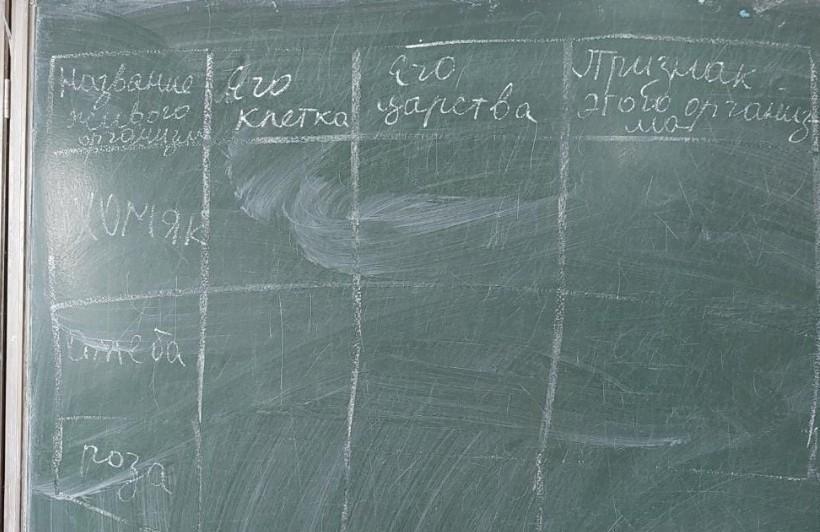 Название
живого
организм
Его
клетка
Его
царства
Признак
этого организ
ма
хомяк
амеба
роза